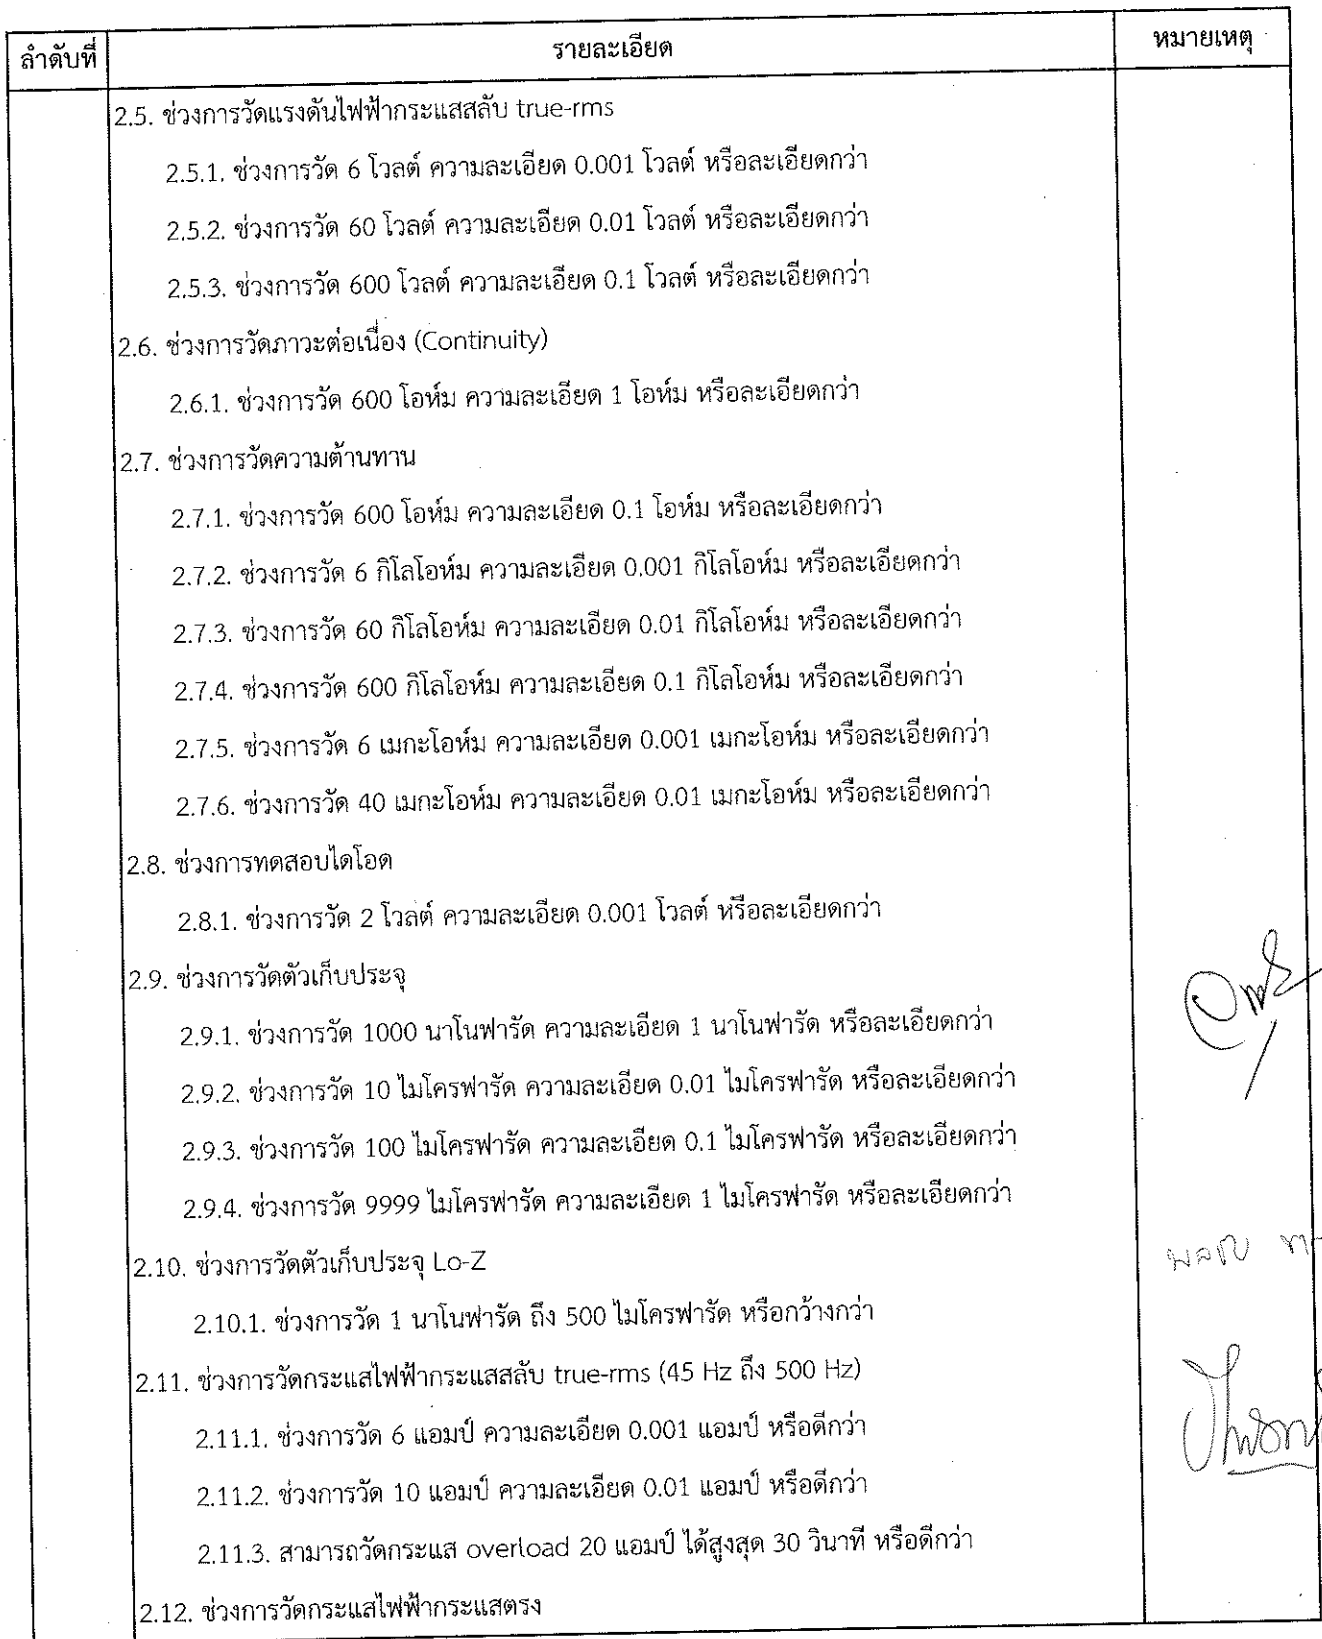 ลำดับที่ รายละเอียด หมายเหตุ
2.5. ช่วงการวัดแรงดันไฟฟ้ากระแสสลับ true-rms
2.5.1. ช่วงการวัด 6 โวลต์ ความละเอียด 0.001 โวลต์ หรือละเอียดกว่า
2.5.2. ช่วงการวัด 60 โวลต์ ความละเอียด 0.01 โวลต์ หรือละเอียดกว่า
2.5.3. ช่วงการวัด 600 โวลต์ ความละเอียด 0.1 โวลต์ หรือละเอียดกว่า
2.6. ช่วงการวัดภาวะต่อเนื่อง (Continuity)
2.6.1. ช่วงการวัด 600 โอห์ม ความละเอียด 1 โอห์ม หรือละเอียดกว่า
2.7. ช่วงการวัดความต้านทาน
2.7.1. ช่วงการวัด 600 โอห์ม ความละเอียด 0.1 โอห์ม หรือละเอียดกว่า
2.7.2. ช่วงการวัด 6 กิโลโอห์ม ความละเอียด 0.001 กิโลโอห์ม หรือละเอียดกว่า
2.7.3. ช่วงการวัด 60 กิโลโอห์ม ความละเอียด 0.01 กิโลโอห์ม หรือละเอียดกว่า
2.7.4. ช่วงการวัด 600 กิโลโอห์ม ความละเอียด 0.1 กิโลโอห์ม หรือละเอียดกว่า
2.7.5. ช่วงการวัด 6 เมกะโอห์ม ความละเอียด 0.001 เมกะโอห์ม หรือละเอียดกว่า
2.7.6. ช่วงการวัด 40 เมกะโอห์ม ความละเอียด 0.01 เมกะโอห์ม หรือละเอียดกว่า
2.8. ช่วงการทดสอบไดโอด
2.8.1. ช่วงการวัด 2 โวลต์ ความละเอียด 0.001 โวลต์ หรือละเอียดกว่า
2.9. ช่วงการวัดตัวเก็บประจุ
2.9.1. ช่วงการวัด 1000 นาโนฟารัด ความละเอียด 1 นาโนฟารัด หรือละเอียดกว่า
2.9.2. ช่วงการวัด 10 ไมโครฟารัด ความละเอียด 0.01 ไมโครฟารัด หรือละเอียดกว่า
2.9.3. ช่วงการวัด 100 ไมโครฟารัด ความละเอียด 0.1 ไมโครฟารัด หรือละเอียดกว่า
2.9.4. ช่วงการวัด 9999 ไมโครฟารัด ความละเอียด 1 ไมโครฟารัด หรือละเอียดกว่า
2.10. ช่วงการวัดตัวเก็บประจุ Lo-Z
2.10.1. ช่วงการวัด 1 นาโนฟารัด ถึง 500 ไมโครฟารัด หรือกว้างกว่า
2.11. ช่วงการวัดกระแสไฟฟ้ากระแสสลับ true-rms (45 Hz ถึง 500 Hz)
2.11.1. ช่วงการวัด 6 แอมป์ ความละเอียด 0.001 แอมป์ หรือดีกว่า
2.11.2. ช่วงการวัด 10 แอมป์ ความละเอียด 0.01 แอมป์ หรือดีกว่า
2.11.3. สามารถวัดกระแส overload 20 แอมป์ ได้สูงสุด 30 วินาที หรือดีกว่า
2.12. ช่วงการวัดกระแสไฟฟ้ากระแสตรง